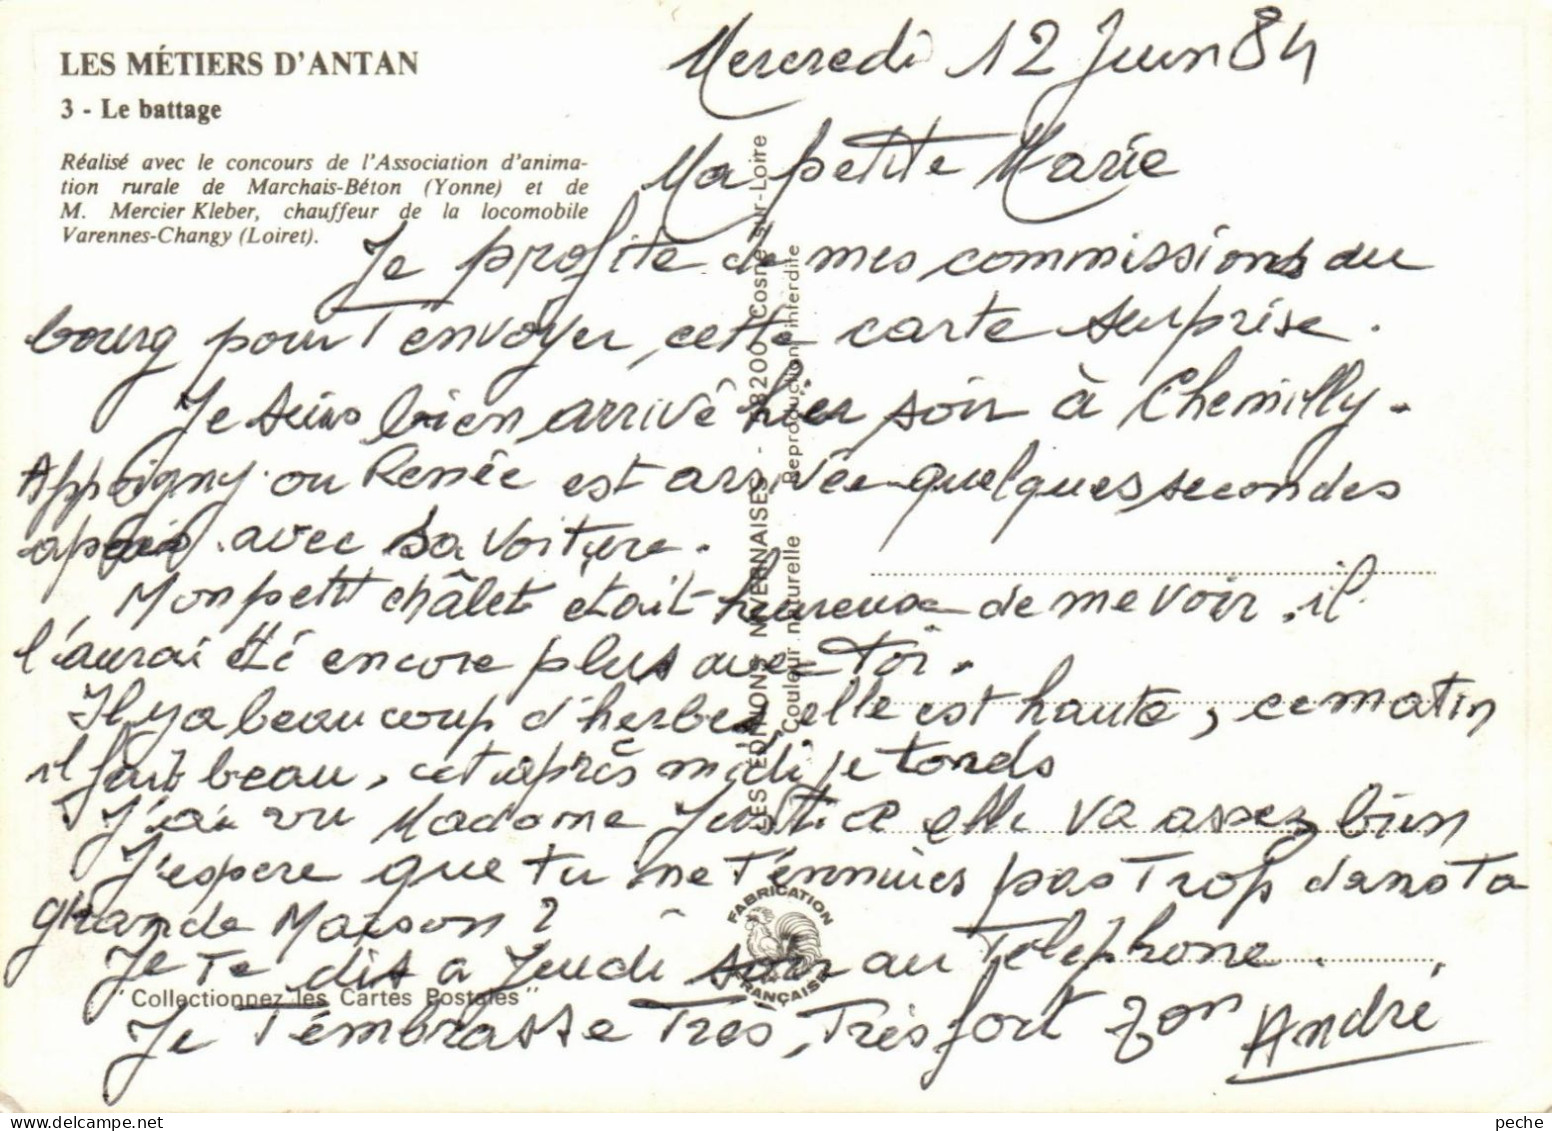 LES MÉTIERS D'ANTAN
3 - Le battage
Réalisé avec le concours de l'Association d'anima-
tion rurale de Marchais-Béton (Yonne) et de
M. Mercier Kleber, chauffeur de la locomobile
Varennes-Changy (Loiret).
Mercredi 12 Juin 84
Ma petite Marie
Je profite de mes commissions au
bourg pour t'envoyer, cette carte surprise.
Je suis bien arrivé hier soir à Chemilly-
Appoigny. ou Renée est arrivée quelques secondes
après avec sa voiture.
Mon petit châlet était heureux de me voir, il
l'aurai été encore plus avec toi.
Il y a beaucoup d'herbes, elle est haute, ce matin
il fait beau, cet après midi je tonds
J'ai vu Madame Justice elle va assez bien
J'espere que tu ne t'ennuies pas trop dans ta
grande Maison ?
Je te dis a Jeudi soir au Telephone.
Je T'embrasse Très, Très fort ton André
LES ÉDITIONS NIVERNAISES - 58200 Cosne-sur-Loire
Couleur naturelle Reproduction interdite
FABRICATION FRANÇAISE
"Collectionnez les Cartes Postales"
peche